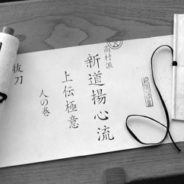 高村派
新道揚心流
上伝極意
人の巻
抜刀